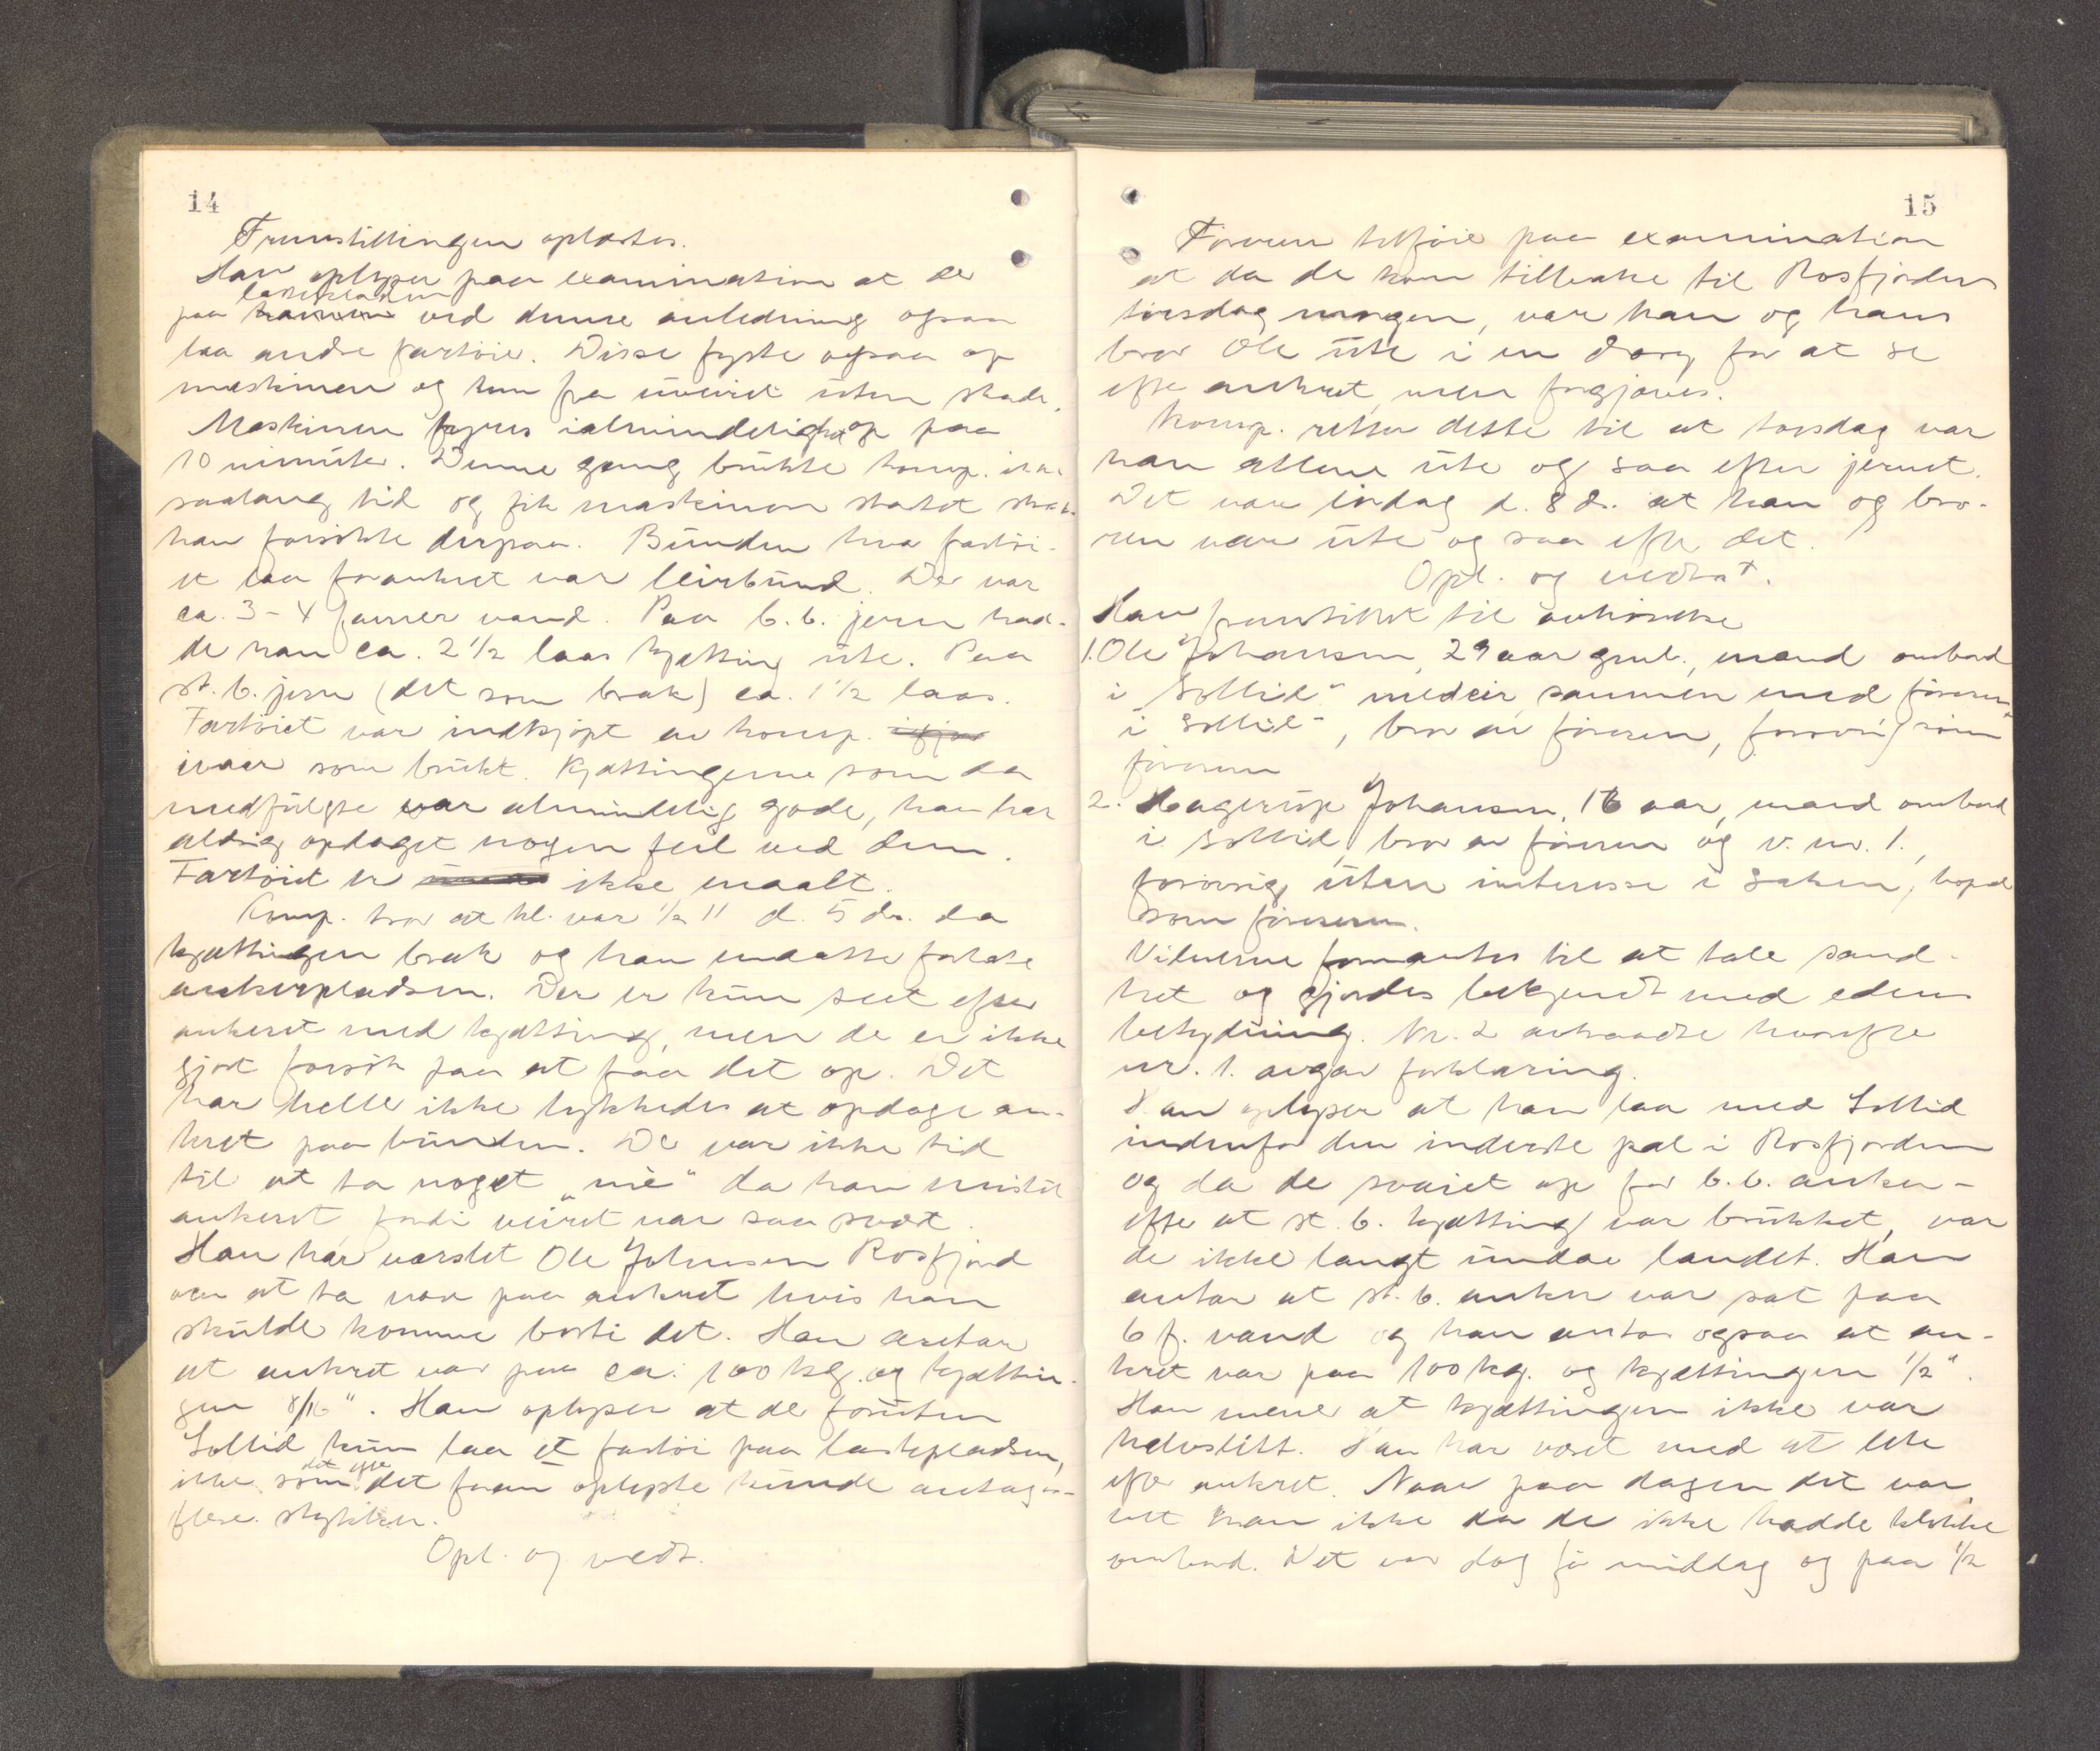 14
Fremstillingen oplæstes.
Han oplyser paa examination at der
lastepladsen
paa havnen ved denne anledning ogsaa
laa andre fartøier. Disse fyrte ogsaa op
maskinen og kom fra uveiret uten skade.
Maskinen fyres i almindelighet op paa
10 minuter. Denne gang brukte komp. ikke
saalang tid og fik maskinen startet straks
han forsøkte derpaa. Bunden hvor fartøi-
et laa forankret var leirbund. Der var
ca. 3-4 favner vand. Paa b.b. jern had-
de han ca. 2 1/2 laas kjætting ute. Paa
st. b. jern (det som brak) ca. 1 1/2 laas.
Fartøiet var indkjøpt av komp. ifjor
ivaar som brukt. Kjættingerne som da
medfulgte var almindelig gode, han har
aldrig opdaget nogen feil ved dem.
Fartøiet er ikke maalt.
Komp. tror at kl. var 1/2 11 d. 5 ds. da
kjættingen brak og han maatte forlate
ankerpladsen. Der er kun seet efter
ankeret med kjætting, men de er ikke
gjort forsøk paa at faa det op. Det
har heller ikke lykkedes at opdage an-
kret paa bunden. Der var ikke tid
til at ta noget "mé" da han mistet
ankeret fordi veiret var saa svært.
Han har varslet Ole Johnsen Rosfjord
om at ta vare paa ankret hvis han
skulde komme borti det. Han antar
at ankret var paa ca. 100 kg. og kjættin-
gen 8/16". Han oplyser at der foruten
Sollid kun laa et fartøi paa lastepladsen,
det efter
ikke som det foran oplyste kunde antages
flere stykker.
Opl. og vedt.
15
Føreren tilføier paa examination
at da de kom tilbake til Rosfjorden
torsdag morgen, var han og hans
bror Ole ute i en dory for at se
efter ankret, men forgjæves.
Komp. retter dette til at torsdag var
han allene ute og saa efter jernet.
Det var lørdag d. 8 ds. at han og bro-
ren var ute og saa efter det.
Opl. og vedtat.
Han fremstillet til avhørelse
1. Ole Johansen, 29 aar gml., mand ombord
i "Sollid" medeier sammen med føreren
i "Sollid", bror av føreren, forøvrig som
føreren
2. Hagerup Johansen, 16 aar, mand ombord
i Sollid, bror av føreren og v. nr. 1.,
forøvrig uten interesse i saken, bopæl
som føreren.
Vidnerne formantes til at tale sand-
het og gjordes bekjendt med edens
betydning. Nr. 2 avtraadte hvorefter
nr. 1. avgav forklaring.
Han oplyser at han laa med Sollid
indenfor den inderste pæl i Rosfjorden
og da de svaiet op for b.b. anker-
efter at st. b. kjætting var brukket, var
de ikke langt undav landet. Han
antar at st. b. anker var sat paa
6 f. vand og han antar ogsaa at an-
kret var paa 100 kg. og kjættingen 1/2".
Han mener at kjættingen ikke var
halvslitt. Han har været med at lete
efter ankret. Naar paa dagen det var
vet han ikke da de ikke hadde klokke
ombord. Det var dog før middag og paa 1/2